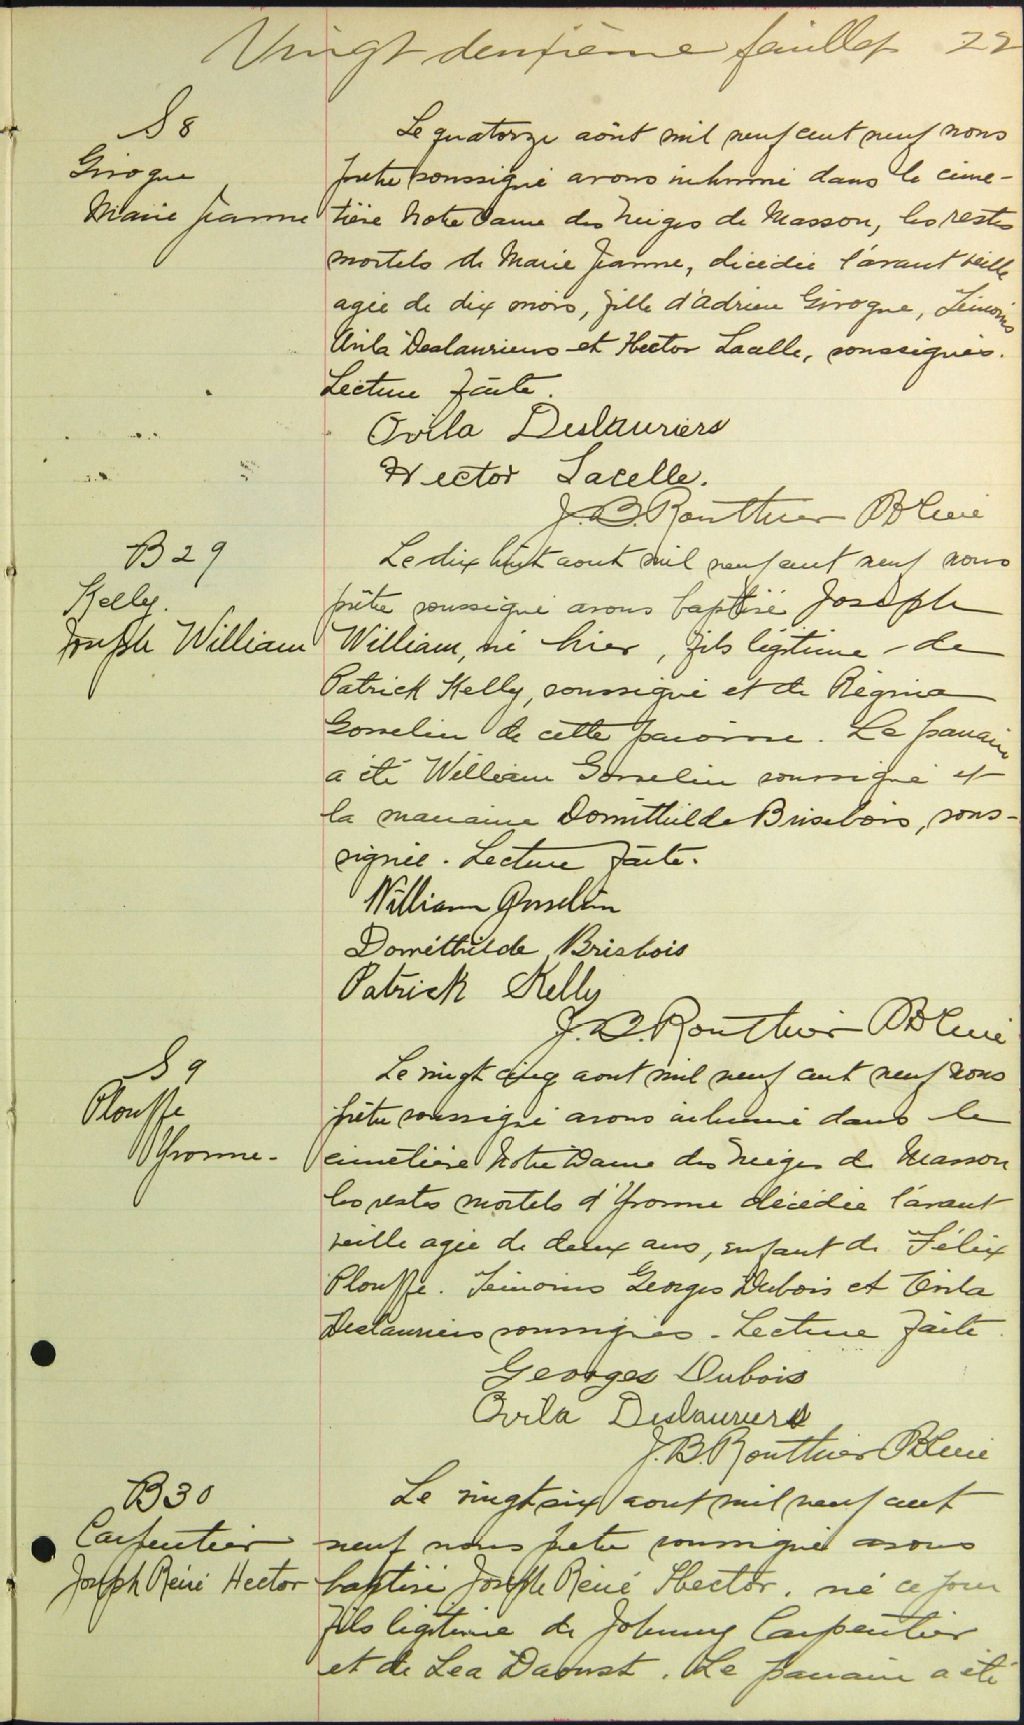 Vingt deuxième feuillet 22
S 8
Girogue
Marie Jeanne
Le quatorze août mil neuf cent neuf nous
prêtre soussigné avons inhumé dans le cime-
tière Notre Dame des Neiges de Masson, les restes
mortels de Marie Jeanne, décédée l'avant veille
agée de dix mois, fille d'Adrien Girogue, Témoins
Ovila Deslauriers et Hector Lacelle, soussignés.
Lecture faite.
Ovila Deslauriers
Hector Lacelle.
J. B. Routhier Ptre Curé
B 29
Kelly.
Joseph William
Le dix huit aout mil neuf cent neuf nous
prêtre soussigné avons baptisé Joseph
William, né hier, fils légitime de
Patrick Kelly, soussigné et de Régina
Gosselin de cette paroisse. Le parrain
a été William Gosselin soussigné et
la marraine Domithilde Brisebois, sous-
signée. Lecture faite.
William Gosselin
Dométhilde Brisbois
Patrick Kelly
J. B. Routhier Ptre Curé
S 9
Plouffe
Yvonne-
Le vingt cinq aout mil neuf cent neuf nous
prêtre soussigné avons inhumé dans le
cimetière Notre Dame des Neiges de Masson
les restes mortels d'Yvonne décédée l'avant
veille agée de deux ans, enfant de Félix
Plouffe. Témoins Georges Dubois et Ovila
Deslauriers soussignés. Lecture faite.
Georges Dubois
Ovila Deslauriers
J. B. Routhier Ptre Curé
B 30
Carpentier
Joseph Réné Hector
Le vingt six aout mil neuf cent
neuf nous prêtre soussigné avons
baptisé Joseph Réné Hector. né ce jour
fils légitime de Johnny Carpentier
et de Lea Daoust. Le parrain a été